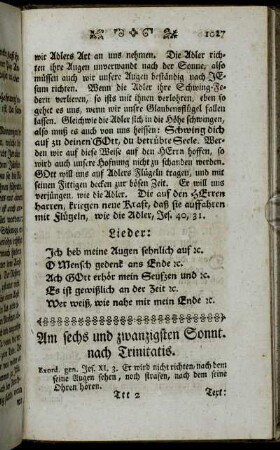 1027
wir Adlers Art an uns nehmen. Die Adler rich-
ten ihre Augen unverwandt nach der Sonne, also
müssen auch wir unsere Augen beständig nach JE-
sum richten. Wenn die Adler ihre Schwing-Fe-
dern verlieren, so ists mit ihnen verlohren, eben so
gehet es uns, wenn wir unsere Glaubensflügel fallen
lassen. Gleichwie die Adler sich in die Höhe schwingen,
also muß es auch von uns heissen: Schwing dich
auf zu deinen GOtt, du betrübte Seele. Wer-
den wir auf diese Weise auf den HErrn hoffen, so
wird auch unsere Hofnung nicht zu schanden werden.
GOtt will uns auf Adlers Flügeln tragen, und mit
seinen Fittigen decken zur bösen Zeit. Er will uns
verjüngen, wie die Adler. Die auf den HErren
harren, kriegen neue Kraft, daß sie auffahren
mit Flügeln, wie die Adler, Jes. 40, 31.
Lieder:
Ich heb meine Augen sehnlich auf ꝛc.
O Mensch gedenk ans Ende ꝛc.
Ach GOtt erhör mein Seufzen und ꝛc.
Es ist gewißlich an der Zeit ꝛc.
Wer weiß, wie nahe mir mein Ende ꝛc.
Am sechs und zwanzigsten Sonnt.
nach Trinitatis.
Exord. gen. Jes. XI, 3. Er wird nicht richten, nach dem
seine Augen sehen, noch strafen, nach dem seine
Ohren hören.
Ttt 2 Text: